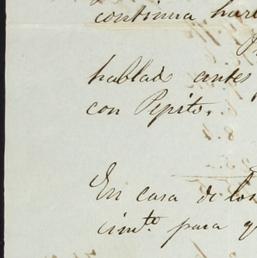 continua har
hablad antes
con Pepito.
En casa de los
cim.to para q